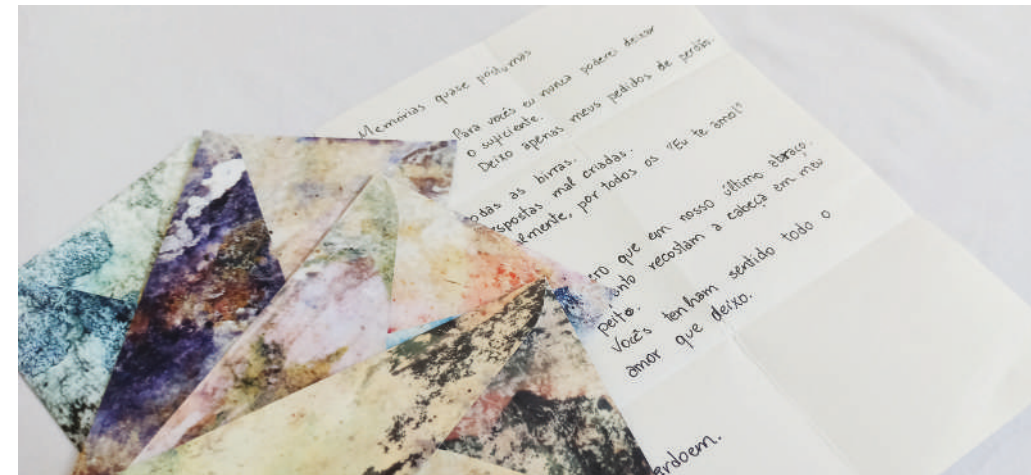 Memórias quase póstumas
Para vocês eu nunca poderei deixar
o suficiente.
Deixo apenas meus pedidos de perdão.
odas as birras.
espostas mal criadas.
lmente, por todos os "Eu te amo!"
ero que em nosso último abraço,
anto recostam a cabeça em meu
peito.
Vocês tenham sentido todo o
amor que deixo.
erdoem.